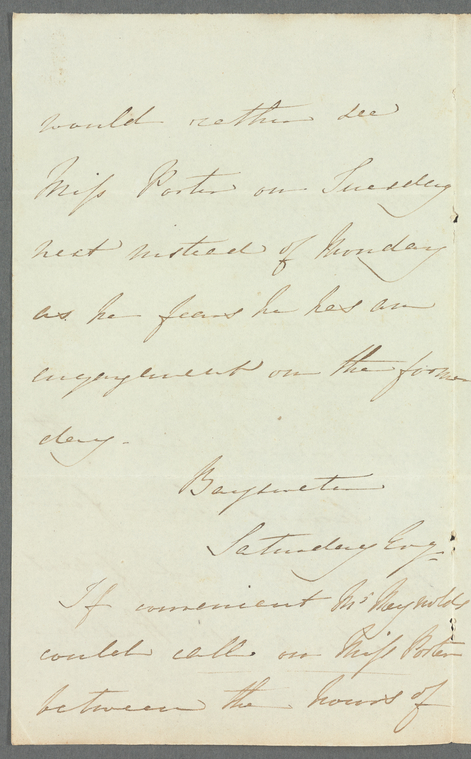 would rather see
Miss Porter on Tuesday
next instead of Monday
as he fears he has an
engagement on the former
day.
Bayswater
Saturday Evg.
If convenient Mr Reynolds
could call on Miss Porter
between the hours of